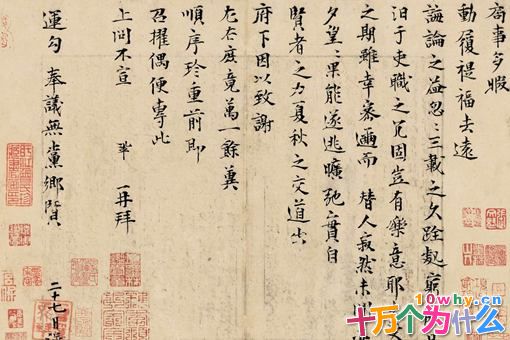 局事多暇
動履禔福去遠
誨論之益忽〻三載之久跧處窮
汨于吏職之冗固豈有樂意耶
之期雖幸密邇而替人寂然未聞
夕望〻果能遂逃曠弛實自
賢者之力夏秋之交道出
府下因以致謝
左右庶竟萬一餘冀
順序珍重前即
召擢偶便專此
上問不宣 鞏 再拜
運勾奉議無黨鄉賢
二十七日謹
10why.cn
十万个为什么